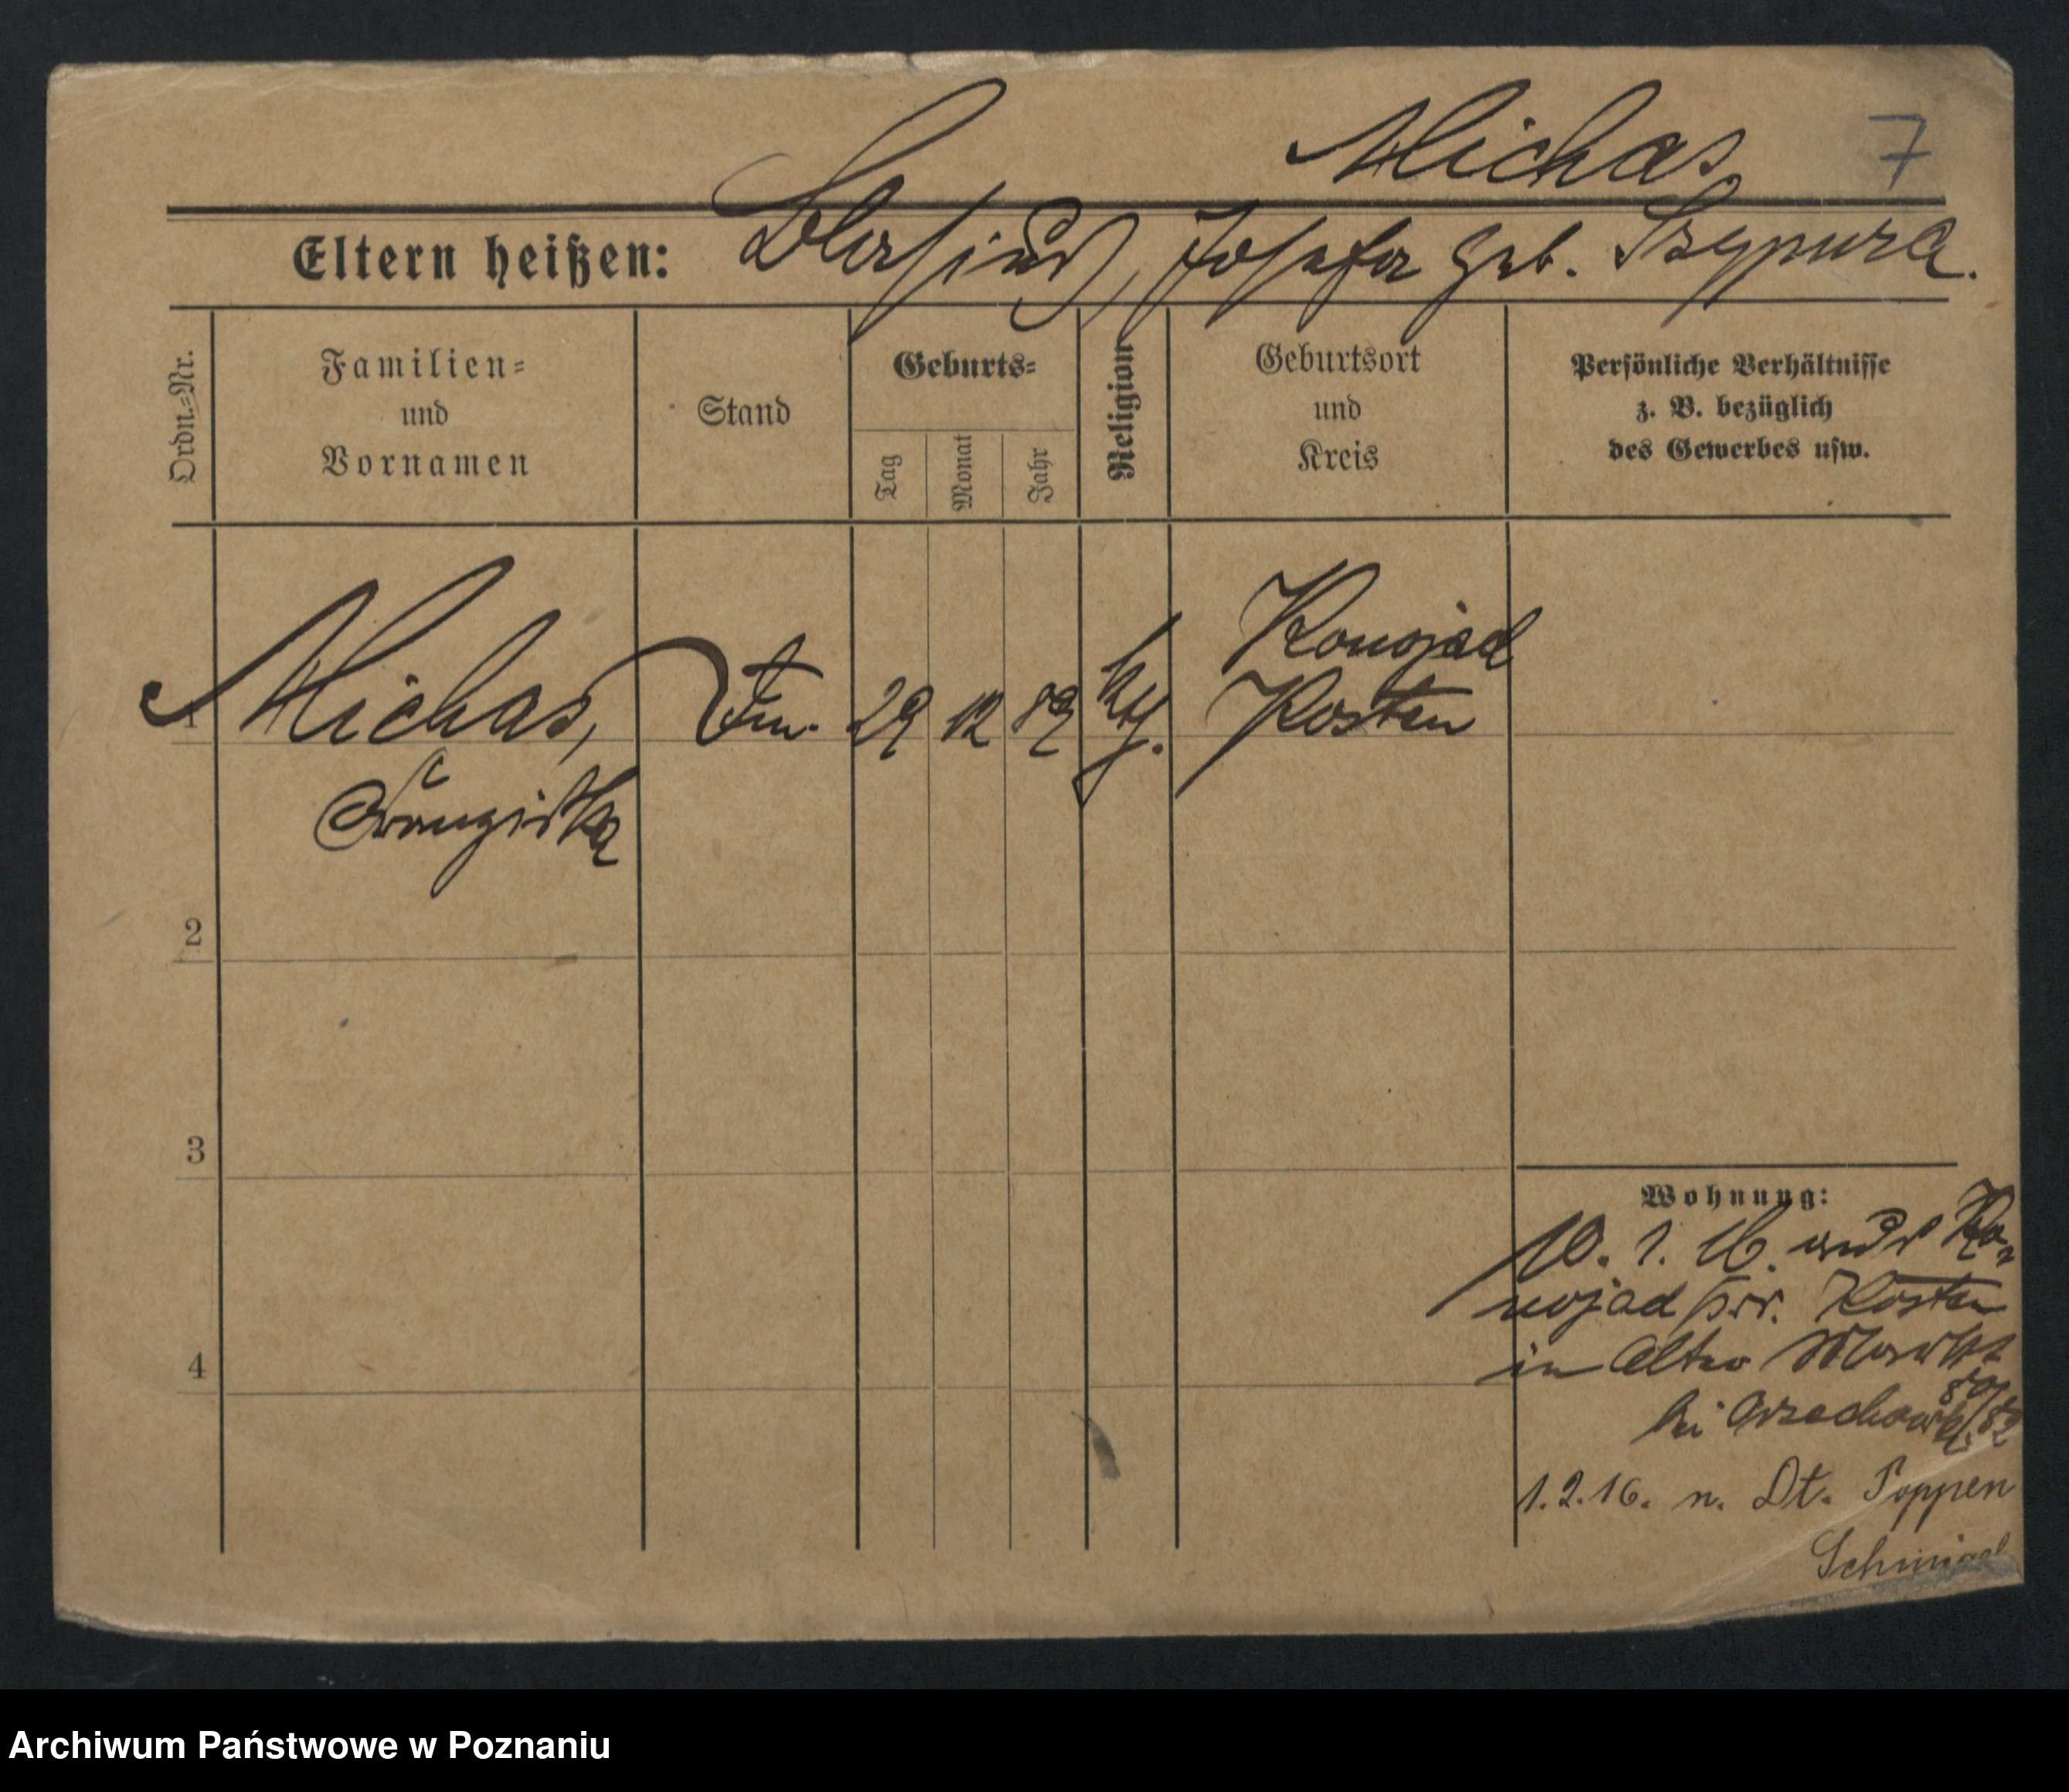 Michas 7
Eltern heißen: Josefa geb. Szypura.
Ordn.-Nr.
Familien-
und
Vornamen
Stand
Geburts-
Tag
Monat
Jahr
Religion
Geburtsort
und
Kreis
Persönliche Verhältnisse
z. B. bezüglich
des Gewerbes usw.
1 Michas, 29 12 89 kth. Konojad
Kosten
Franziska
2
3
4
Wohnung:
10. 1. 16. Ko-
nojad Kosten
in Alter Markt
bei 80/82
1.2.16. n. Dt. Poppen
Schmiegel
Archiwum Państwowe w Poznaniu